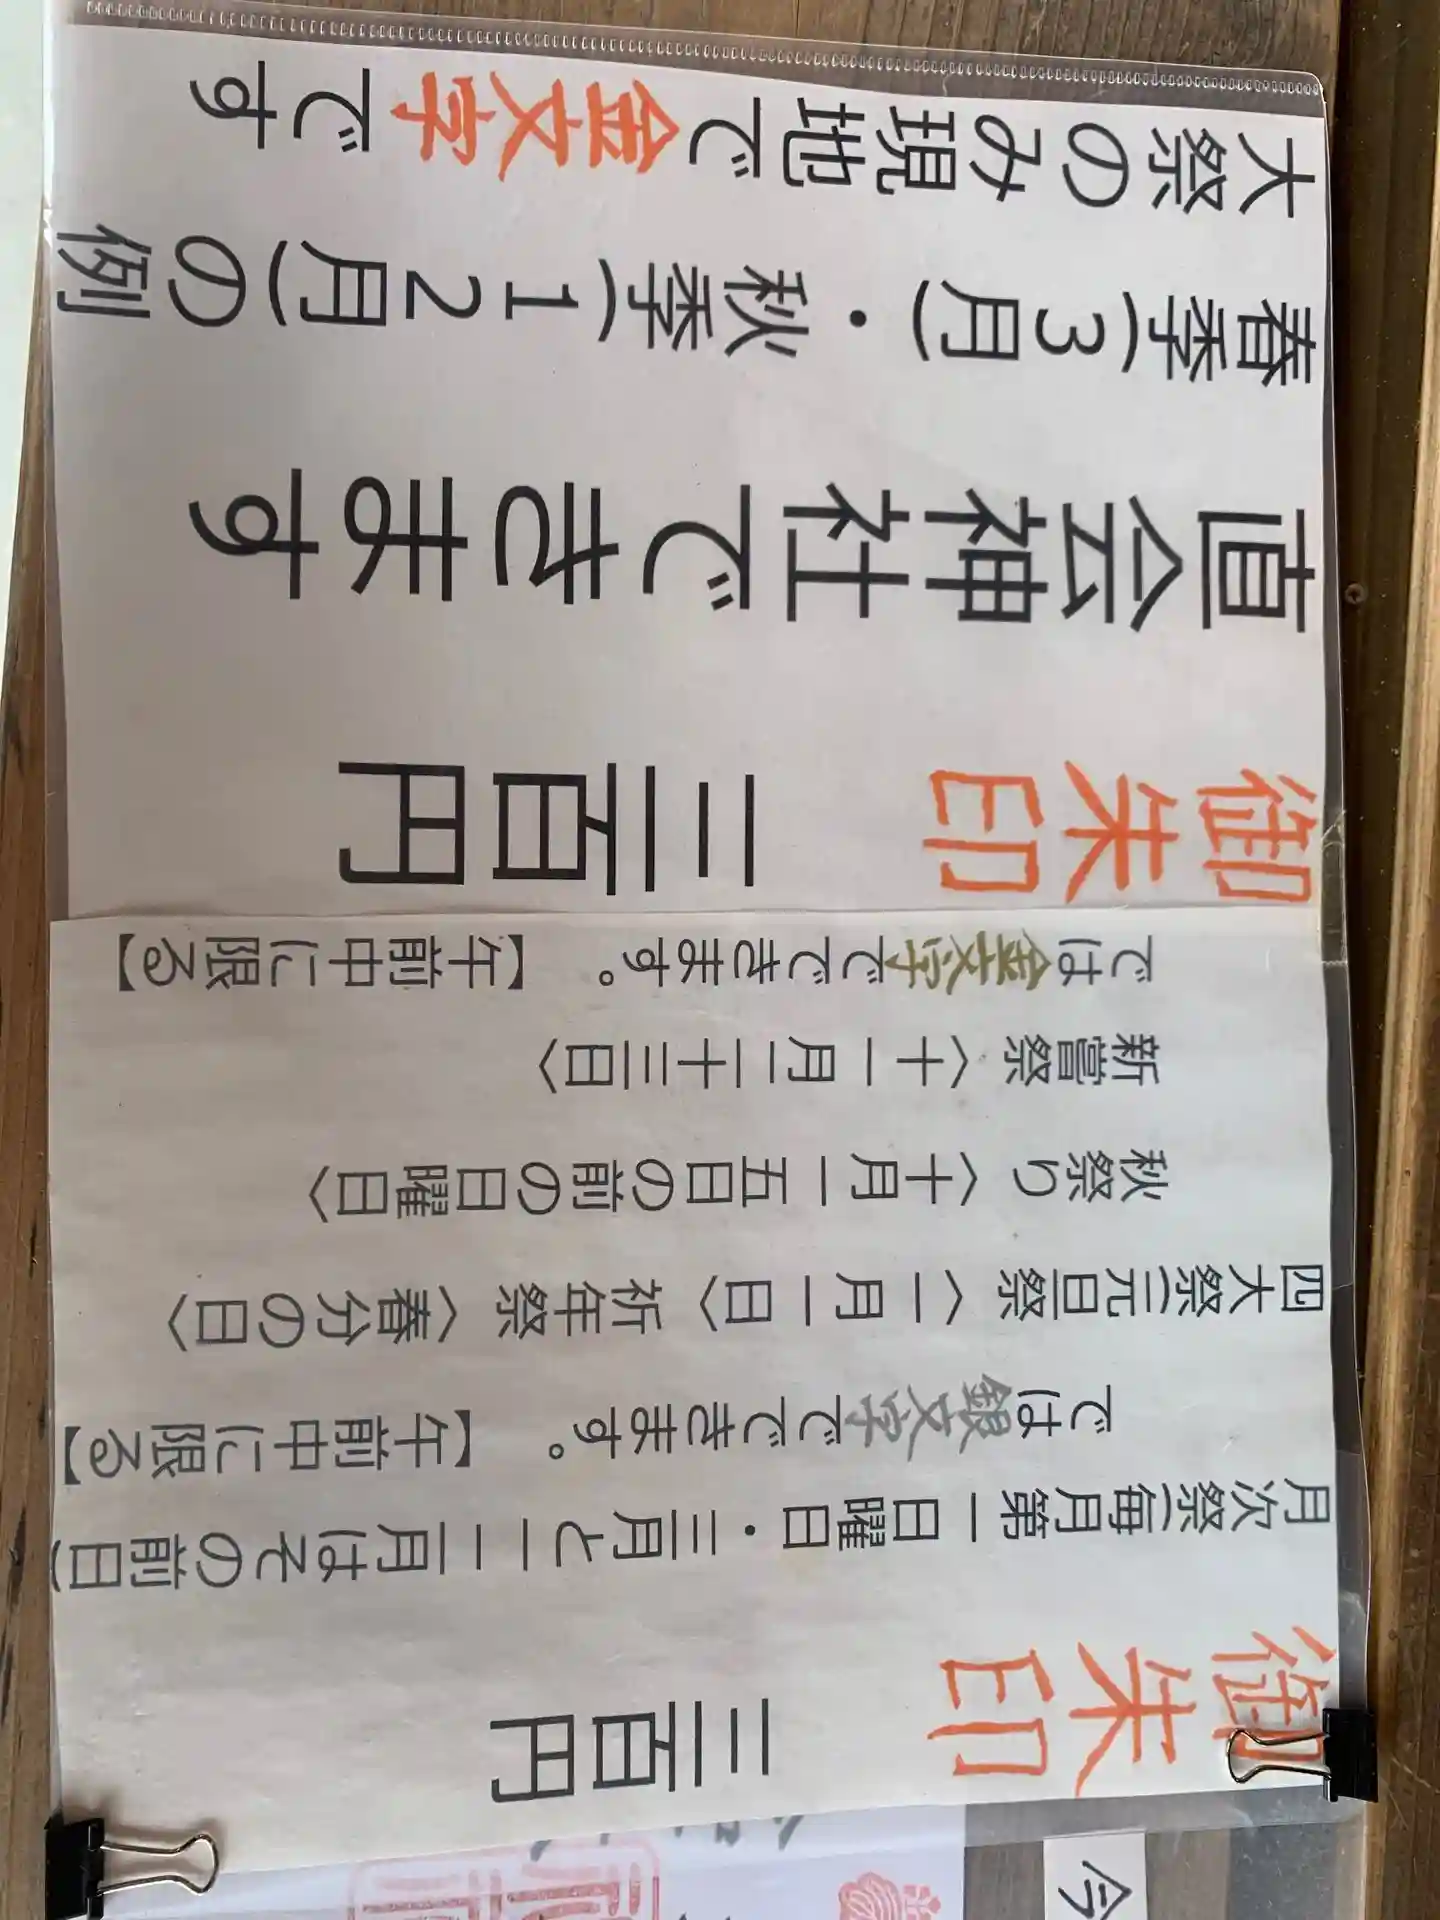 今
御朱印 三百円
月次祭(毎月第一日曜日・三月と一二月はその前日)
では銀文字でできます。【午前中に限る】
四大祭(元旦祭〈一月一日〉祈年祭〈春分の日〉
秋祭り〈十月一五日の前の日曜日〉
新嘗祭〈十一月二十三日〉
では金文字でできます。【午前中に限る】
御朱印 三百円
直会神社できます
春季(3月)・秋季(12月)の例
大祭のみ現地で金文字です